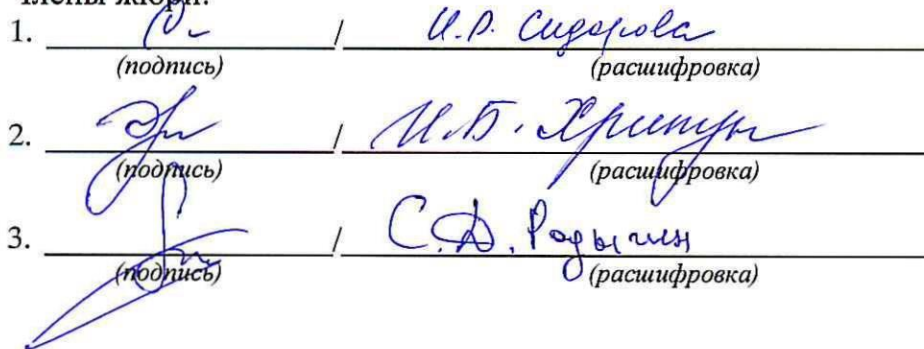 Члены жюри:
1. / И.Р. Сидорова
(подпись) (расшифровка)
2. / И.Б.
(подпись) (расшифровка)
3. / С.Д. Родыгин
(подпись) (расшифровка)